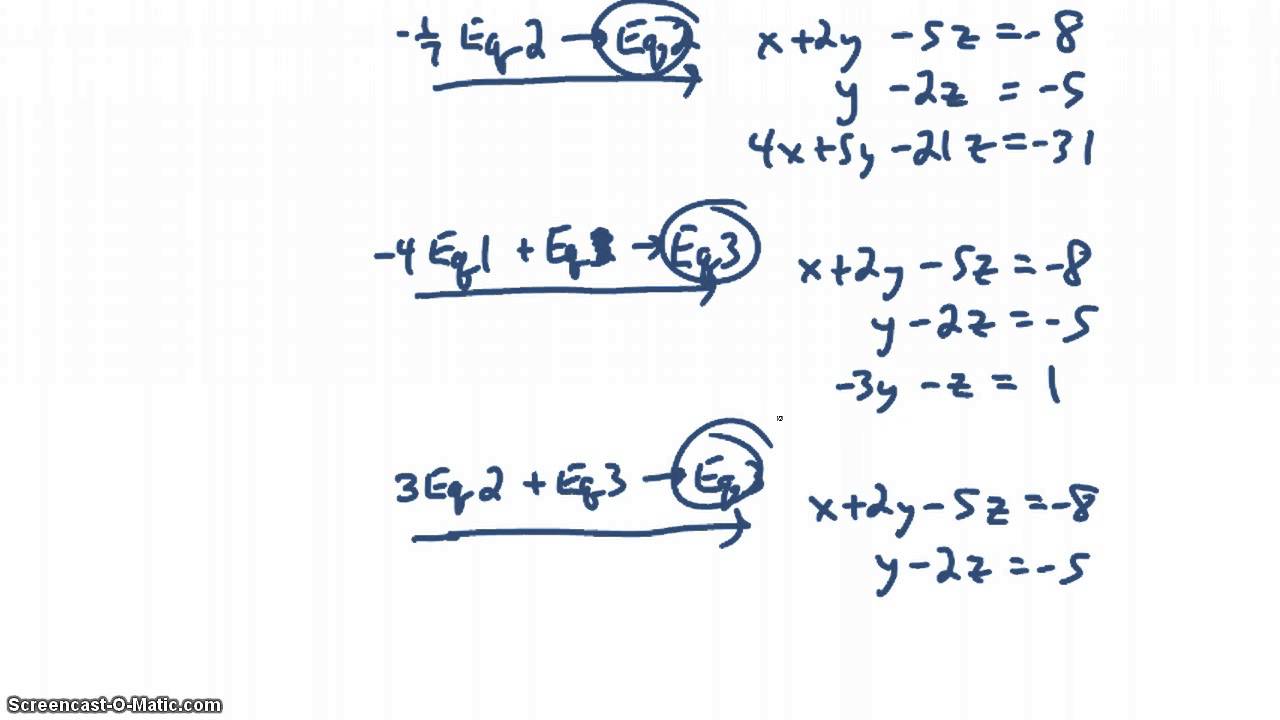 -1/7 Eq2 → Eq2
x + 2y - 5z = -8
y - 2z = -5
4x + 5y - 21z = -31
-4 Eq1 + Eq3 → Eq3
x + 2y - 5z = -8
y - 2z = -5
-3y - z = 1
3Eq2 + Eq3 → Eq3
x + 2y - 5z = -8
y - 2z = -5
Screencast-O-Matic.com